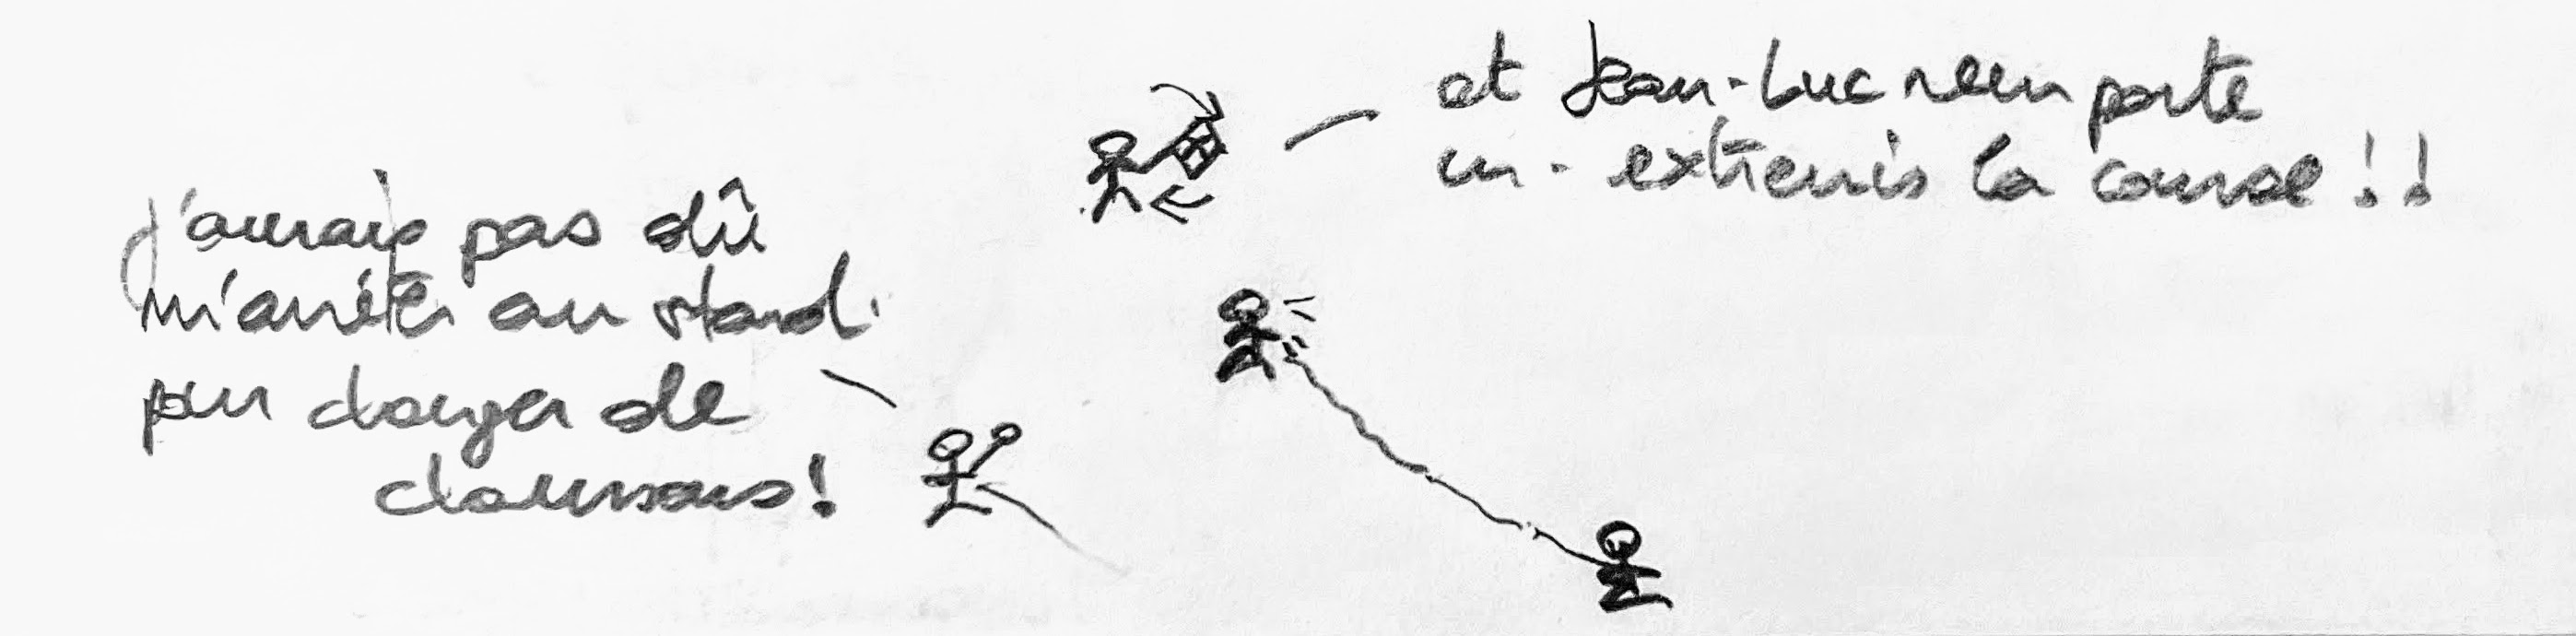 et Jean-Luc remporte
in-extremis la course !!
j'aurais pas dû
m'arrêter au stand
pour changer de
chaussons !